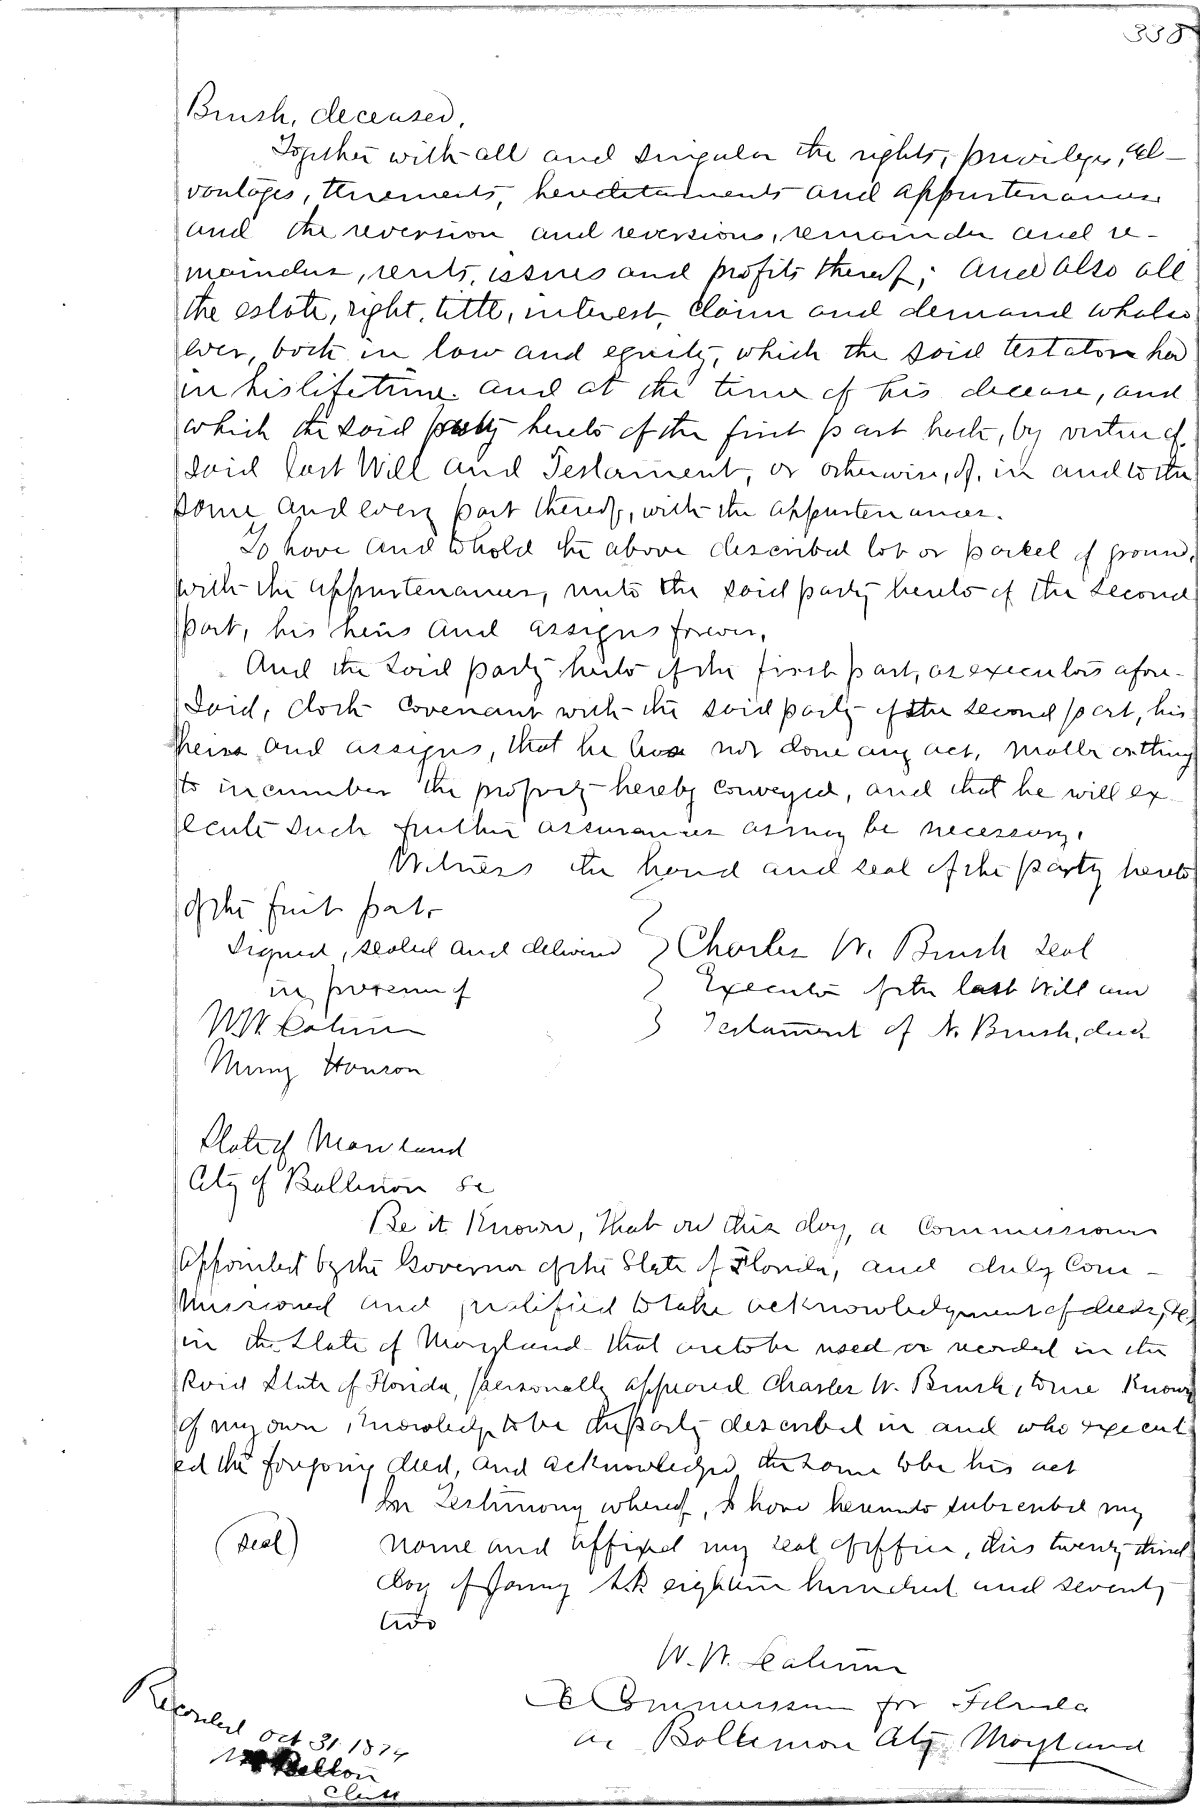 338
Brush, deceased.
Together with all and singular the rights, privileges, ad-
vantages, tenements, hereditaments and appurtenances
and the reversion and reversions, remainder and re-
mainders, rents, issues and profits thereof; And also all
the estate, right, title, interest, claim and demand whatso
ever, both in law and equity, which the said testator had
in his lifetime and at the time of his decease, and
which the said party hereto of the first part hath, by virtue of
said last Will and Testament, or otherwise, of, in and to the
same and every part thereof, with the appurtenances.
To have and to hold the above described lot or parcel of ground,
with the appurtenances, unto the said party hereto of the second
part, his heirs and assigns forever.
And the said party hereto of the first part, as executor afore-
said, doth covenant with the said party of the second part, his
heirs and assigns, that he has not done any act, matter or thing
to incumber the property hereby conveyed, and that he will ex-
ecute such further assurances as may be necessary.
Witness the hand and seal of the party hereto
of the first part.
Signed, sealed and delivered Charles W. Brush seal
in presence of Executor of the last Will and
W.W. Testament of N. Brush, decd
Hanson
State of Maryland
City of Baltimore Sc
Be it Known, that on this day, a Commissioner
appointed by the Governor of the State of Florida, and duly Com-
missioned and qualified to take acknowledgment of deeds, &c,
in the State of Maryland that are to be used or recorded in the
said State of Florida, personally appeared Charles W. Brush, to me Known
of my own Knowledge to be the party described in and who execut
ed the foregoing deed, and acknowledged the same to be his act
In Testimony whereof, I have hereunto subscribed my
(seal) name and affixed my seal of office, this twenty third
day of eighteen hundred and seventy
two
W. W.
A Commissioner for Florida
in Baltimore City Maryland
Recorded Oct 31 1874
Clerk